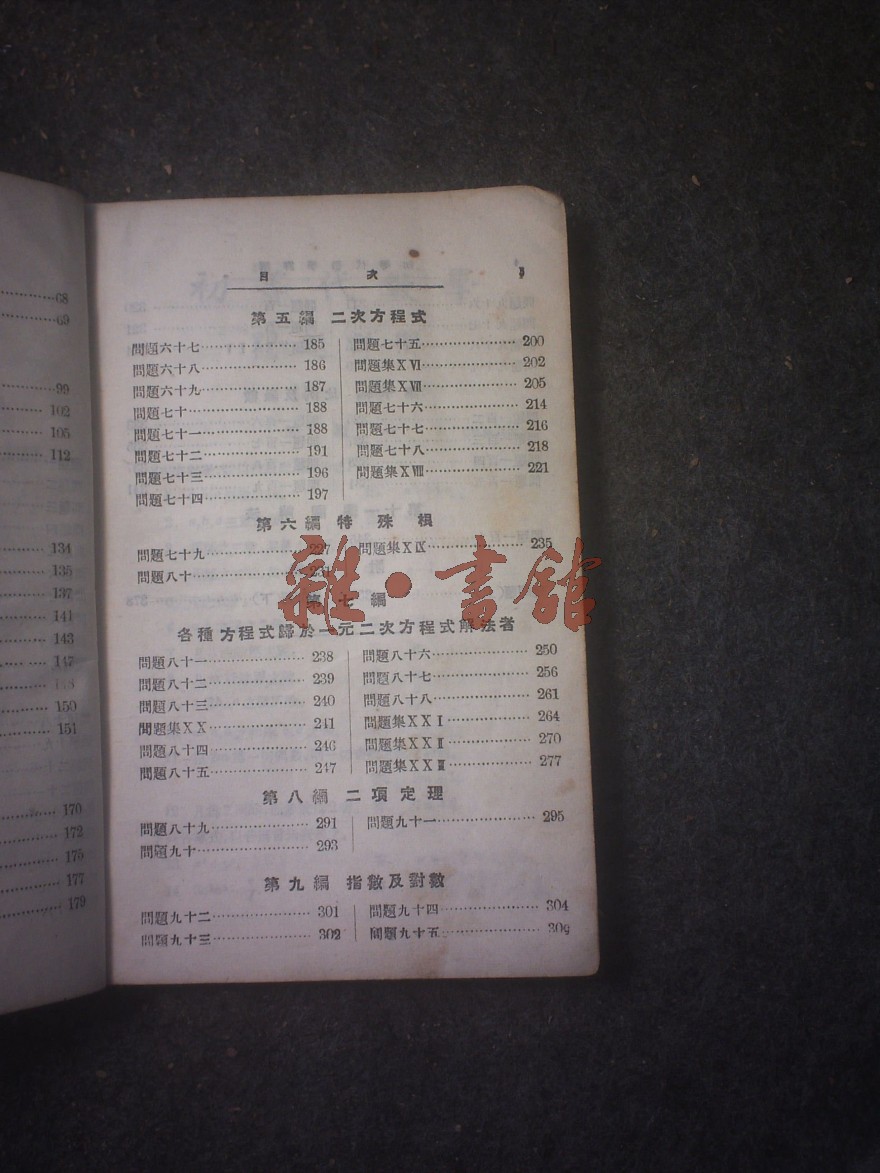 68
69
99
102
105
112
134
135
137
141
143
147
150
151
170
172
175
177
179
目次
第五編 二次方程式
問題六十七 185
問題六十八 186
問題六十九 187
問題七十 188
問題七十一 188
問題七十二 191
問題七十三 196
問題七十四 197
問題七十五 200
問題集XVI 202
問題集XVII 205
問題七十六 214
問題七十七 216
問題七十八 218
問題集XVIII 221
第六編 特殊根
問題七十九 227
問題八十
問題集XIX 235
雜·書館
第七編
各種方程式歸於一元二次方程式解法者
問題八十一 238
問題八十二 239
問題八十三 240
問題集XX 241
問題八十四 246
問題八十五 247
問題八十六 250
問題八十七 256
問題八十八 261
問題集XXI 264
問題集XXII 270
問題集XXIII 277
第八編 二項定理
問題八十九 291
問題九十 293
問題九十一 295
第九編 指數及對數
問題九十二 301
問題九十三 302
問題九十四 304
問題九十五 309